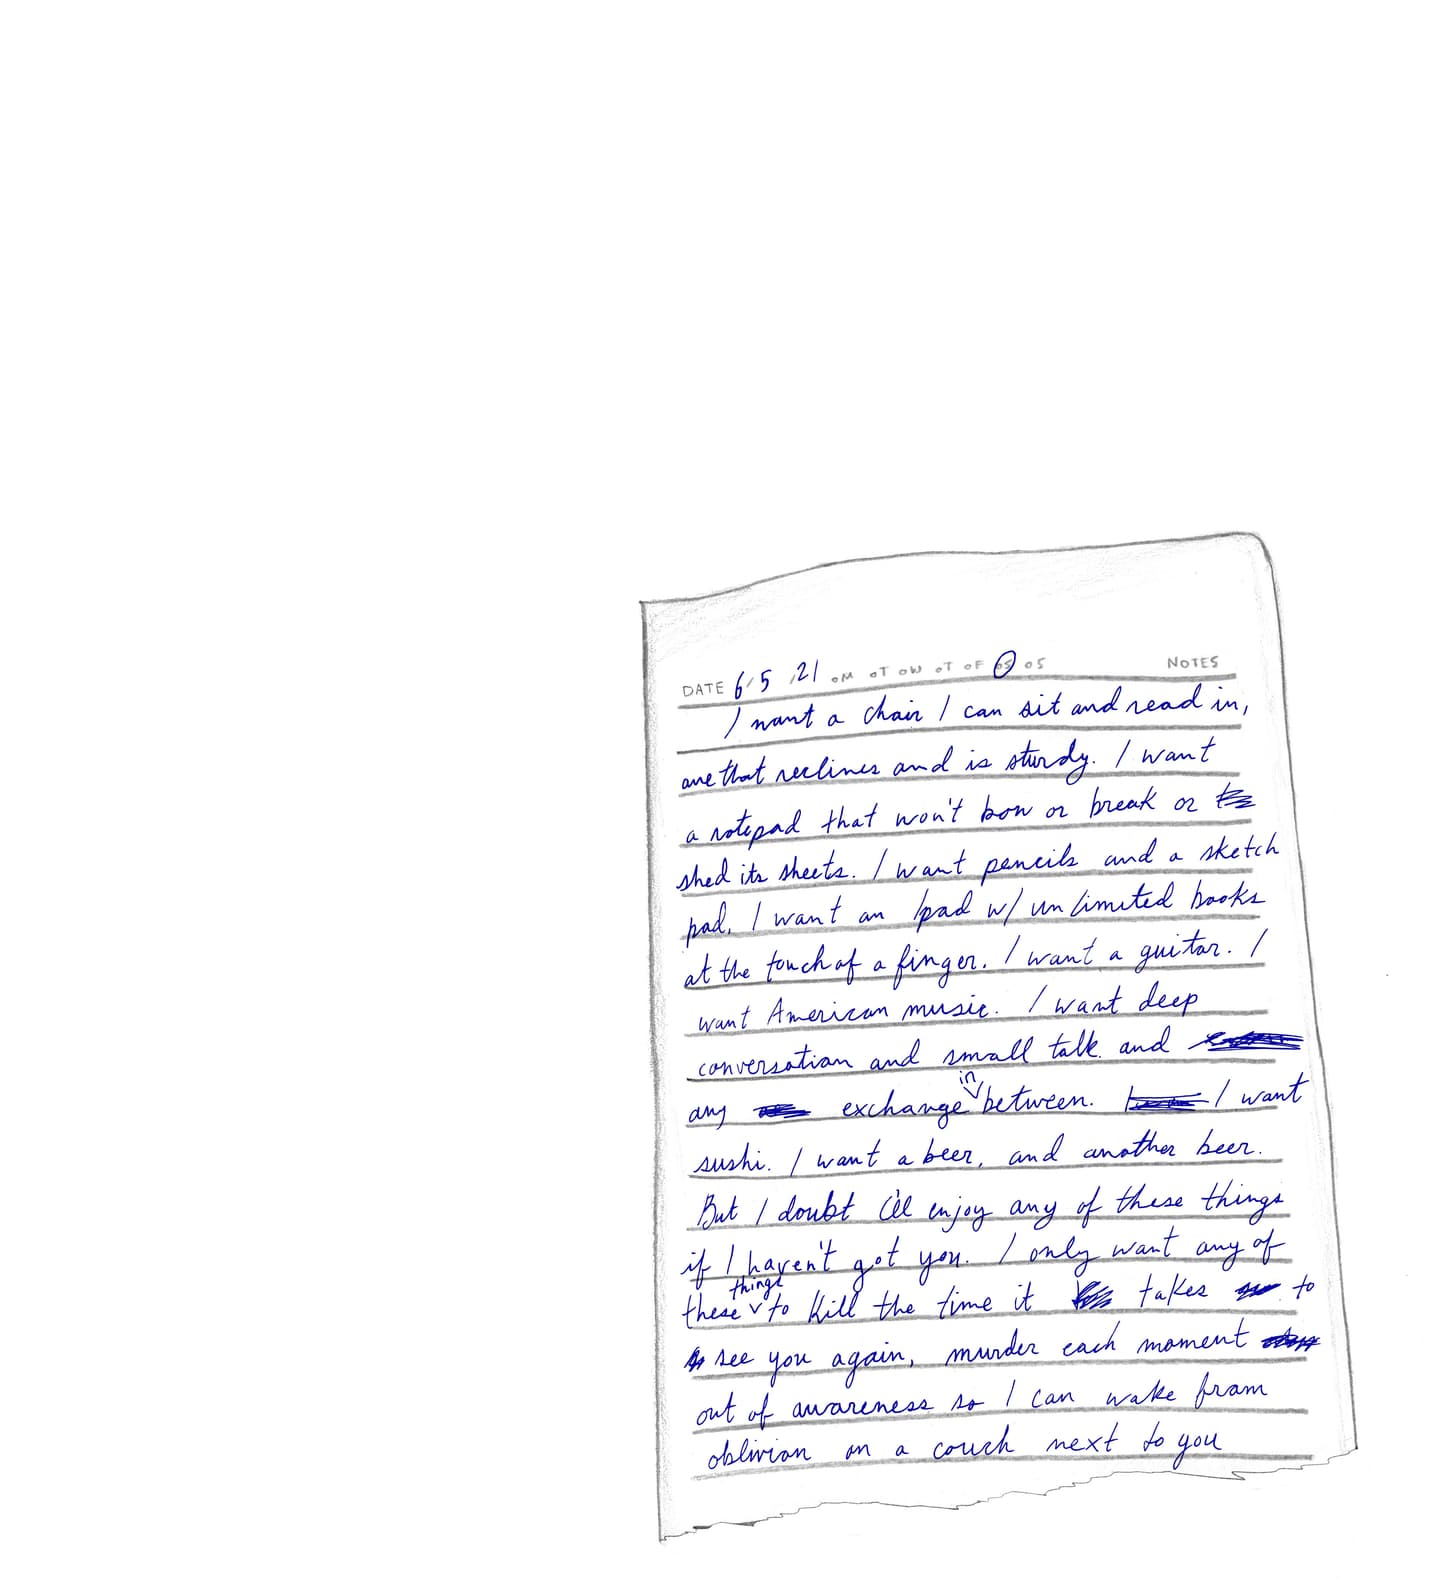 DATE 6/5/21 oM oT oW oT oF oS oS NOTES
I want a chair I can sit and read in,
one that reclines and is sturdy. I want
a notepad that won't bow or break or
shed its sheets. I want pencils and a sketch
pad. I want an Ipad w/ unlimited books
at the touch of a finger. I want a guitar. I
want American music. I want deep
conversation and small talk and
any exchange in between. I want
sushi. I want a beer, and another beer.
But I doubt i'll enjoy any of these things
if I haven't got you. I only want any of
these things to kill the time it takes to
see you again, murder each moment
out of awareness so I can wake from
oblivion on a couch next to you